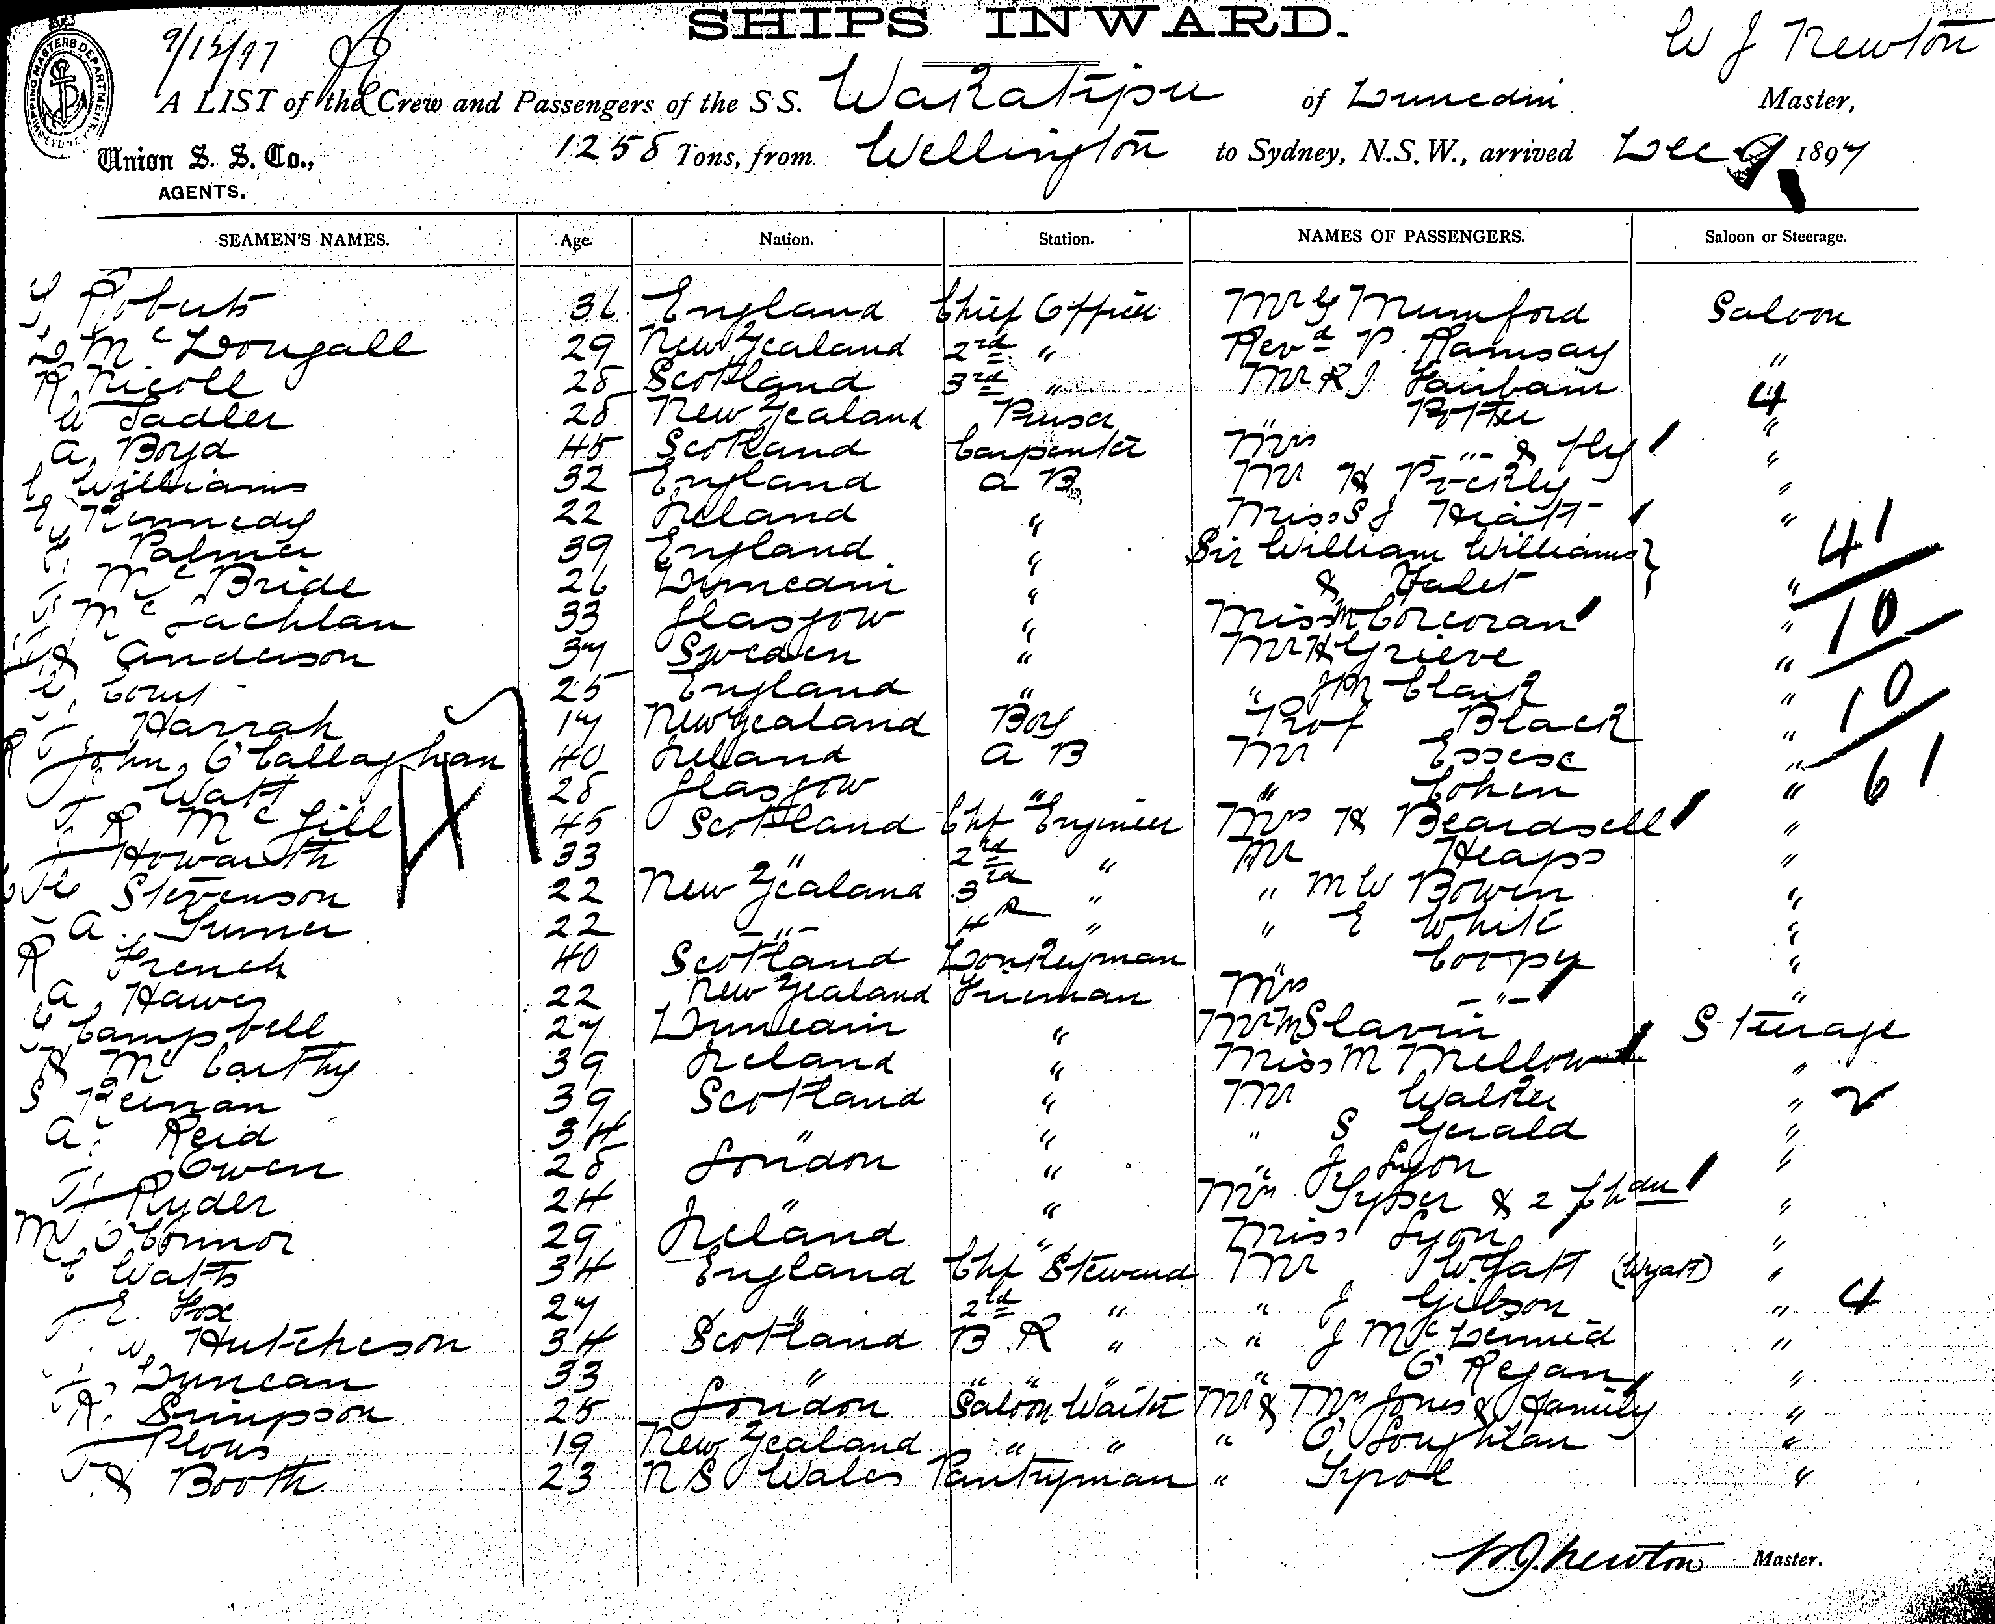 SHIPS INWARD.
9/12/97
W J Newton
A LIST of the Crew and Passengers of the S.S. Wakatipu of Dunedin Master,
Union S. S. Co., 1258 Tons, from Wellington to Sydney, N.S.W., arrived Dec 9 1897
AGENTS.
SEAMEN'S NAMES. Age. Nation. Station. NAMES OF PASSENGERS. Saloon or Steerage.
Roberts 36 England Chief Officer Mr G Mumford Saloon
D McDougall 29 New Zealand 2nd " Revd P. Ramsay "
R Nicoll 28 Scotland 3rd " Mr R J Fairbairn 4
W Sadler 28 New Zealand Purser " Potter "
A. Boyd 45 Scotland Carpenter Mrs -"- & fly "
C Williams 32 England A B Mr H Pockley "
Kennedy 22 Ireland " Miss S J Hiatt "
Palmer 39 England " Sir William Williams } 41
McBride 26 Dunedin " & Valet "
McLachlan 33 Glasgow " Miss M Corcoran " 10
Anderson 37 Sweden " Mr H Grieve "
25 England " " J M Clark " 10
T. Harrah 17 New Zealand Boy Prof Black "
John O'Callaghan 40 Ireland A B Mr Essese " 61
Watt 28 Glasgow " " Cohen "
R McGill 45 Scotland Chf Engineer Mrs H Beardsell "
Howarth 33 " 2nd " Mr Heaps "
Stevenson 22 New Zealand 3rd " " M W Bowen "
A. Turner 22 -"- 4th " " E White "
R French 40 Scotland Donkeyman " Coopy "
A. Hawes 22 New Zealand Fireman Mrs -"- "
Campbell 27 Dunedin " Mr M Slavin Steerage
McCarthy 39 Ireland " Miss M Mellow "
S Keenan 39 Scotland " Mr Walker " 2
A. Reid 34 " " " S Gerald "
Owen 28 London " " J Lyon "
Ryder 24 " " Mrs & 2 Chdn "
M O'Connor 29 Ireland " Miss Lyon "
C Watts 34 England Chf Steward Mr Wyatt (Wyatt) "
E. Fox 27 " 2nd " " J Gibson " 4
W Hutcheson 34 Scotland B R " " J McDermid "
Duncan 33 " " " " " O'Regan "
R. Simpson 25 London Saloon Waiter Mr & Mrs Jones & Family "
Plous 19 New Zealand " " " O'Loughlan "
Booth 23 N S Wales Pantryman " Sypol "
W.J. Newton Master.